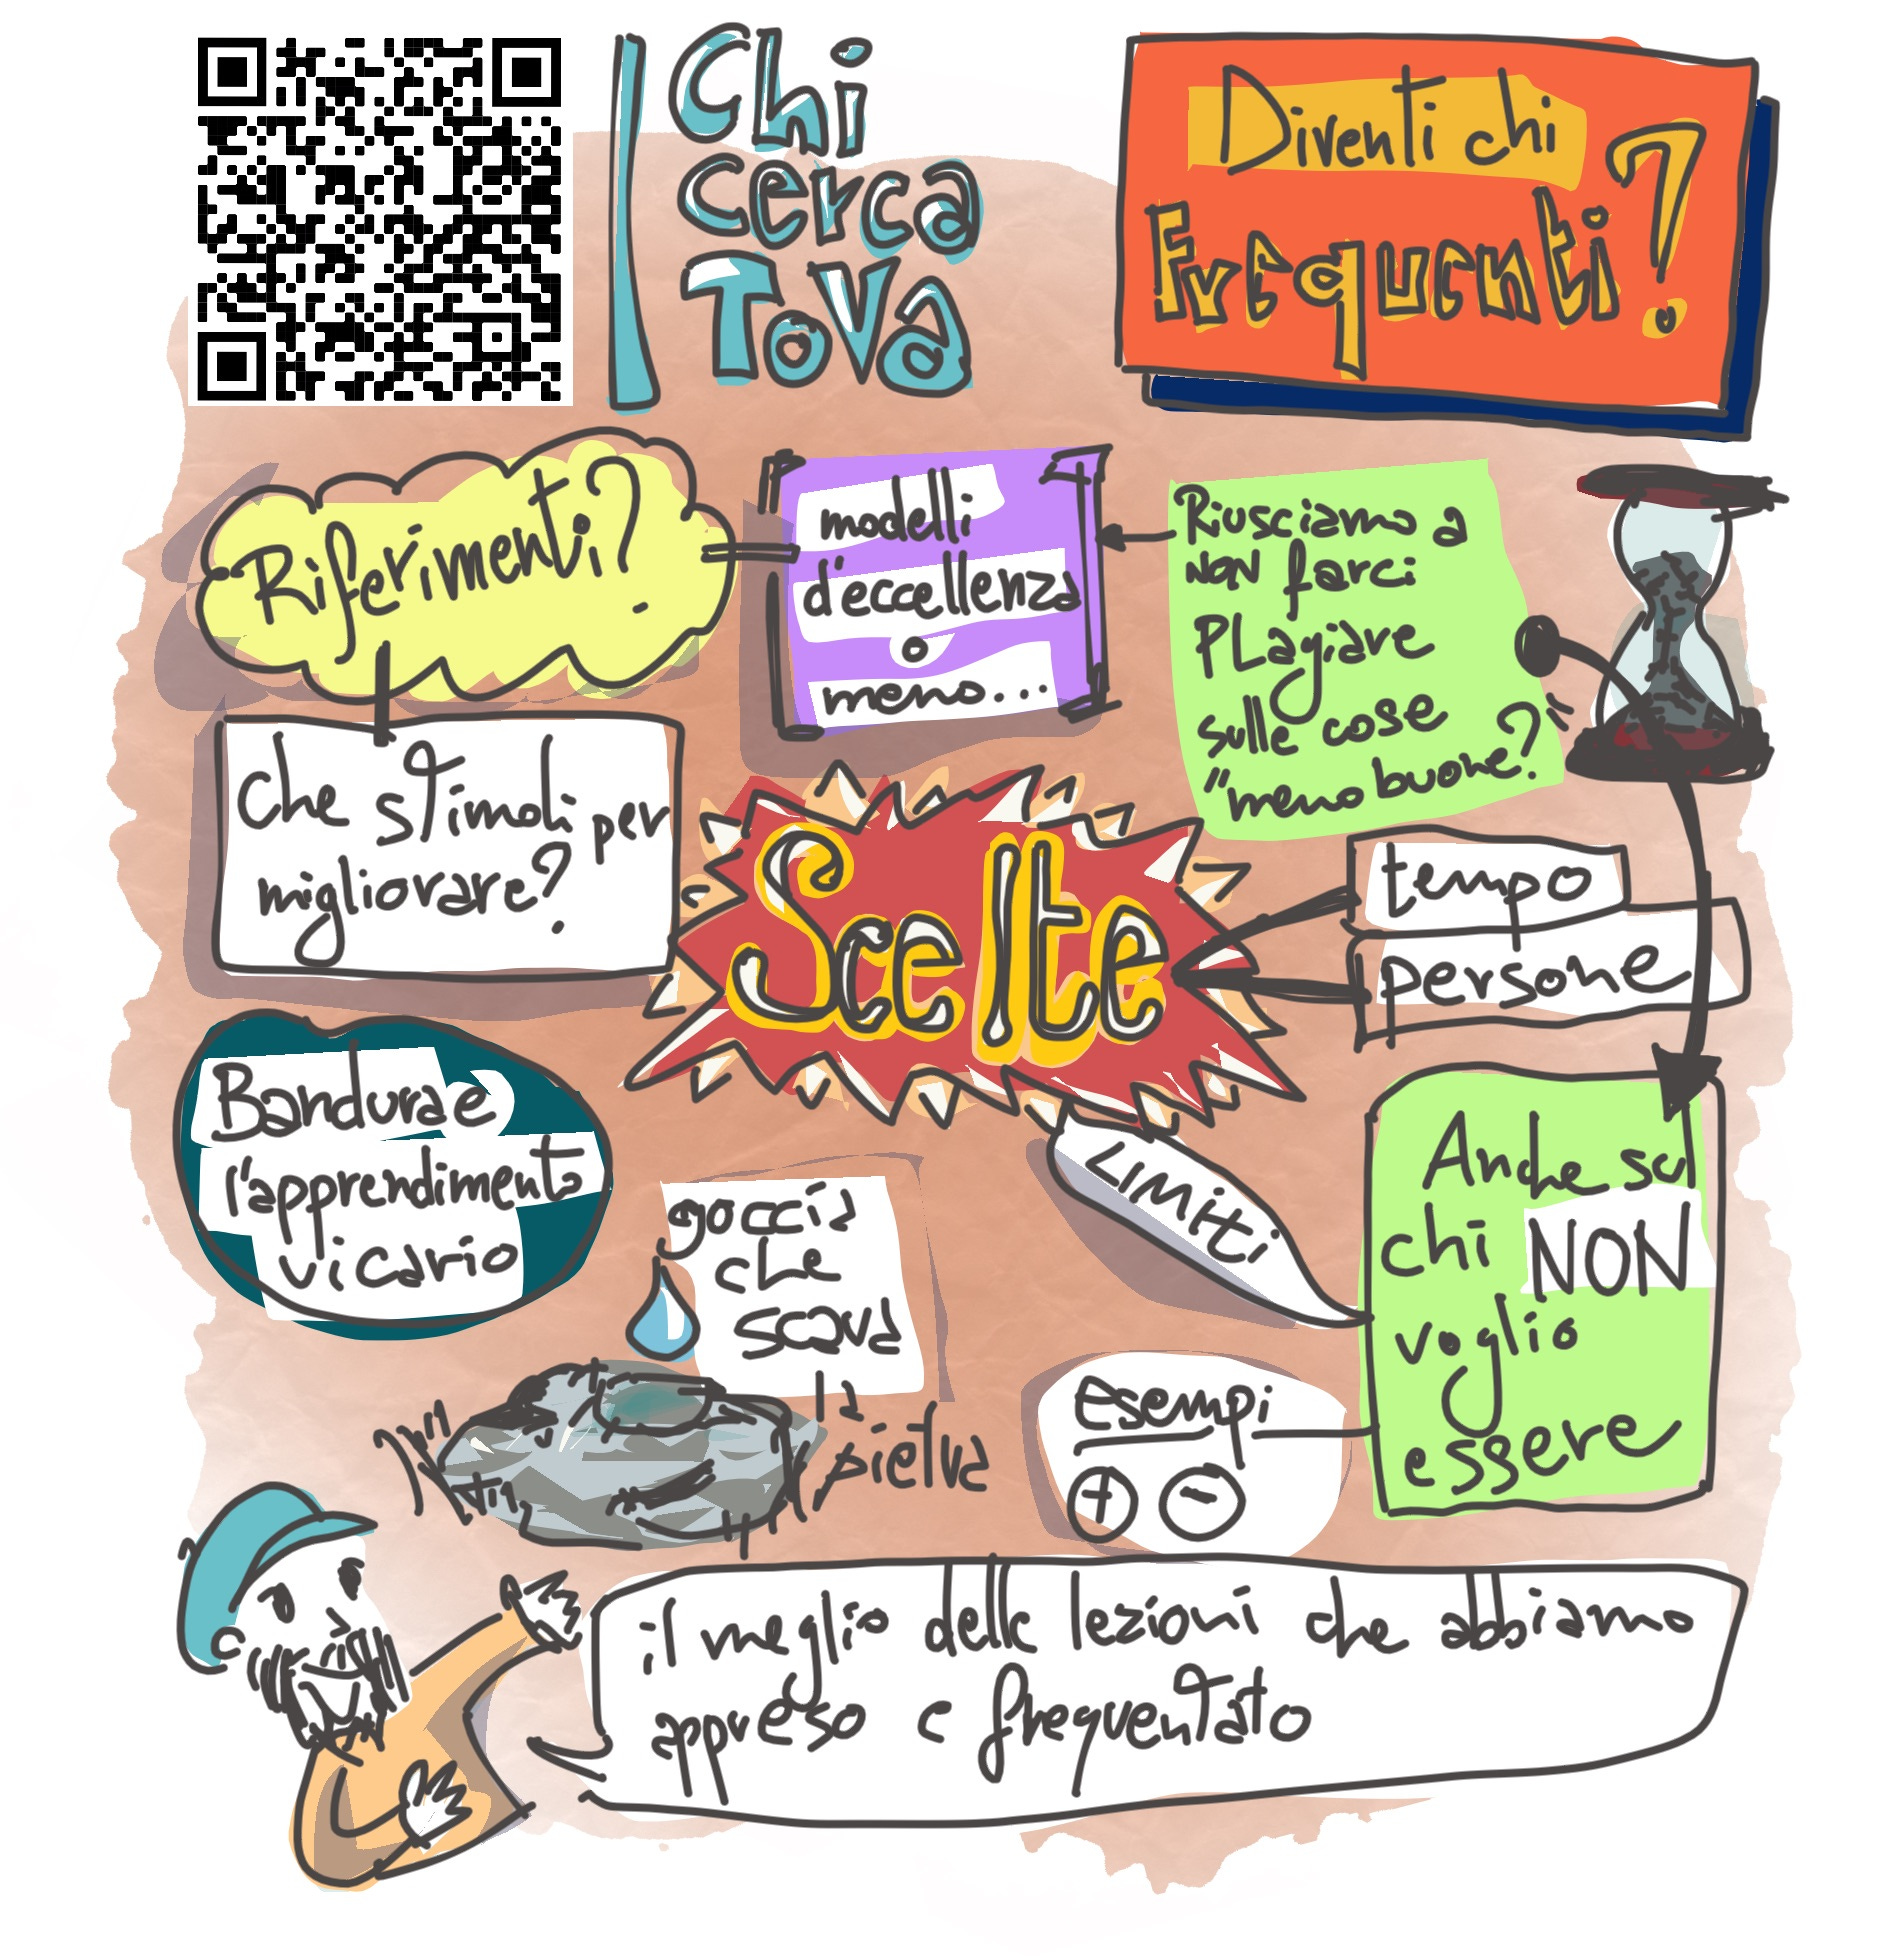 Chi
cerca
ToVa
Diventi chi
Frequenti?
Riferimenti?
modelli
d'eccellenza
o
meno...
Riusciamo a
NON farci
PLagiare
sulle cose
"meno buone?"
Che stimoli per
migliorare?
Scelte
tempo
persone
Bandura e
l'apprendimento
vicario
goccia
che
scava
la
pietra
LIMITI
Anche sul
chi NON
voglio
essere
Esempi
+ -
il meglio delle lezioni che abbiamo
appreso e frequentato